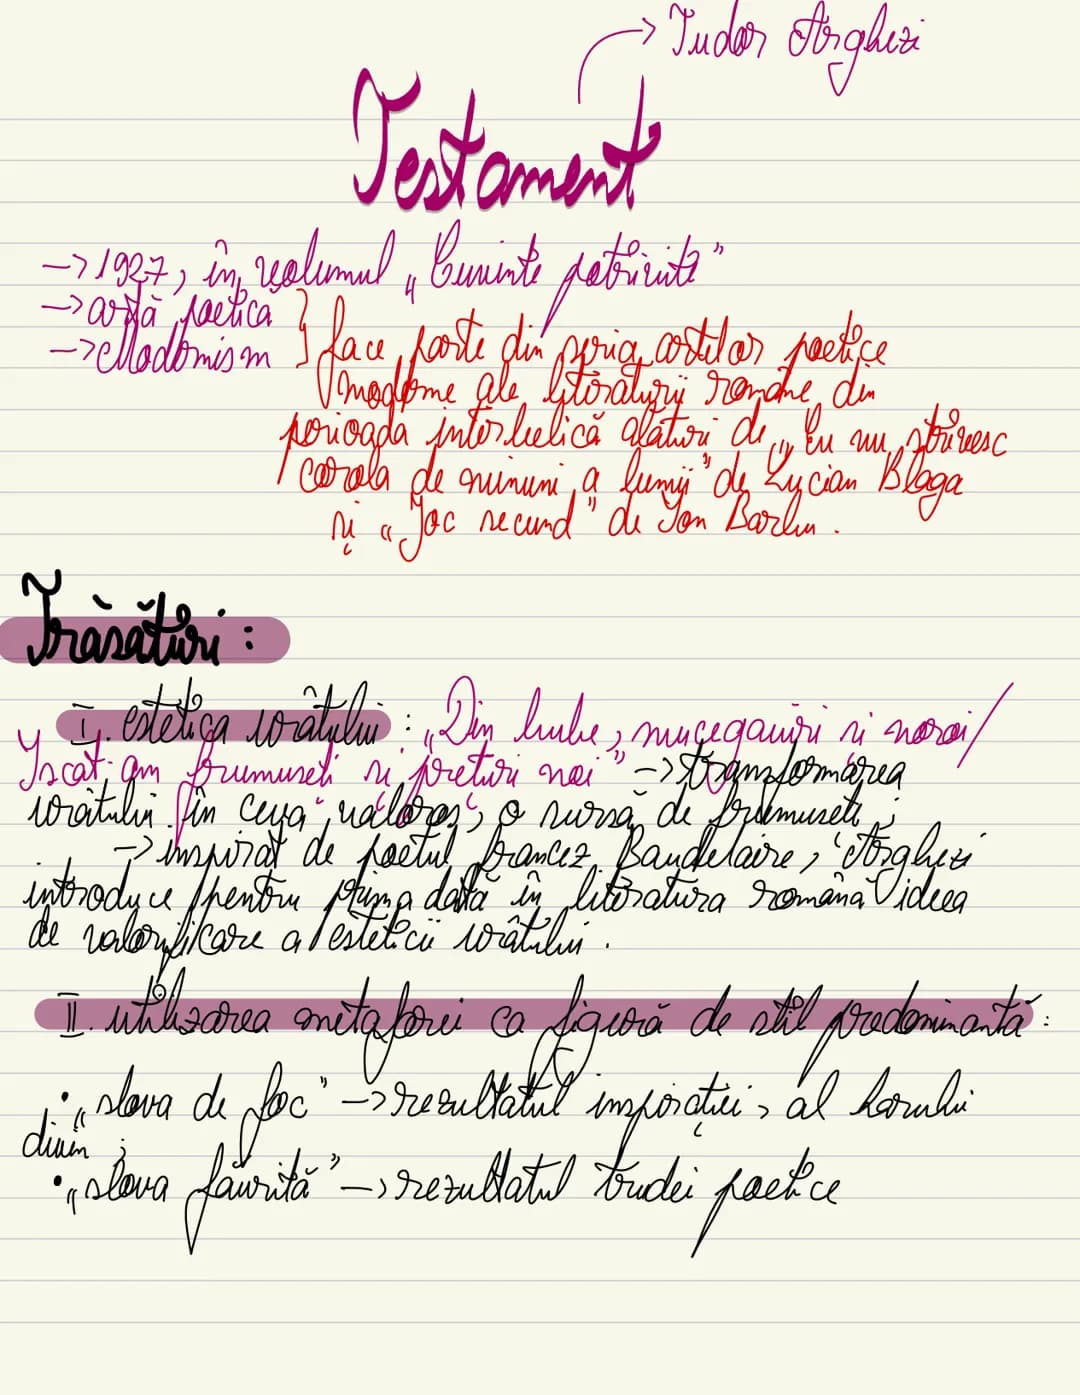 → Tudor Arghezi
Testament
→ 1927, în volumul „Cuvinte potrivite”
→ artă poetică
→ Modernism } face parte din seria artelor poetice
moderne ale literaturii române din
perioada interbelică alături de „Eu nu strivesc
corola de minuni a lumii” de Lucian Blaga
și „Joc secund” de Ion Barbu.
Trăsături:
I. estetica urâtului: „Din bube, mucegaiuri și noroi/
Iscat-am frumuseți și prețuri noi” → transformarea
urâtului în ceva valoros, o sursă de frumuseți;
→ inspirat de poetul francez Baudelaire, Arghezi
introduce pentru prima dată în literatura română ideea
de valorificare a esteticii urâtului.
II. utilizarea metaforei ca figură de stil predominantă:
• „slova de foc” → rezultatul inspirației, al harului
divin;
• „slova făurită” → rezultatul trudei poetice